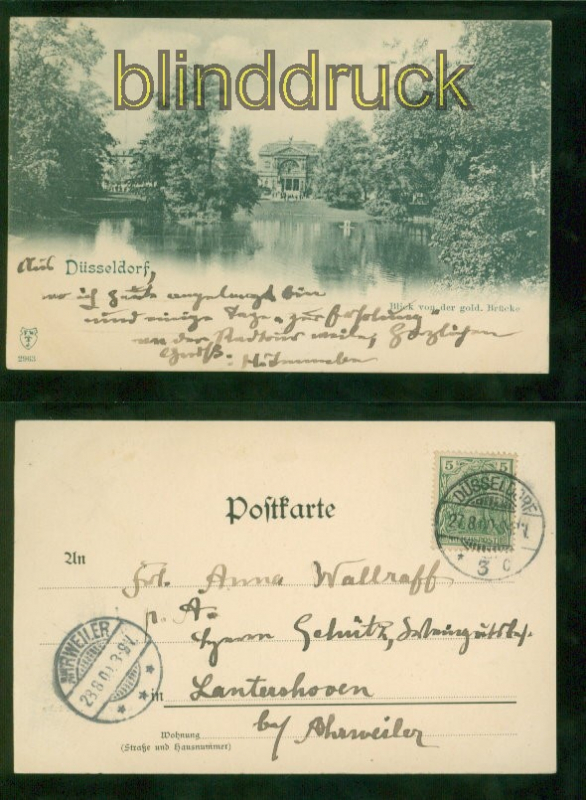 blinddruck
Aus Düsseldorf,
Blick von der gold. Brücke
wo ich heute angelangt bin
und einige Tage "zur Erholung"
an der weile, Herzlichen
Gruß
2963
Postkarte
5 5
DÜSSELDORF
27.8.00
* 3 c
An
Frl. Anna Wallraff
p. A.
Herrn Schütz, Weingutsbes.
AHRWEILER
28.8.00.
in Lantershoven
bey Ahrweiler
Wohnung
(Straße und Hausnummer)